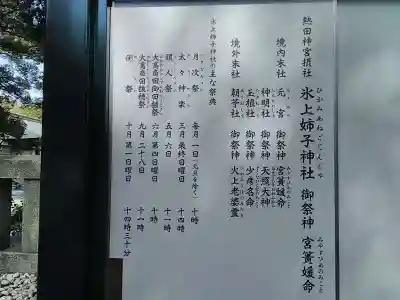 熱田神宮摂社
氷上姉子神社 御祭神 宮簀媛命
ひかみあねごじんじゃ みやすひめのみこと
境内末社
元宮 御祭神 宮簀媛命
神明社 御祭神 天照大神
玉根社 御祭神 少彦名命
境外末社
朝苧社 御祭神 火上老婆霊
氷上姉子神社の主な祭典
月次祭 毎月一日(元旦を除く) 十時
太々神楽 三月最終日曜日 十四時
頭人祭 五月六日 十一時
大高斎田御田植祭 六月第四日曜日 十時
大高斎田抜穂祭 九月二十八日 十一時
例祭 十月第一日曜日 十四時三十分